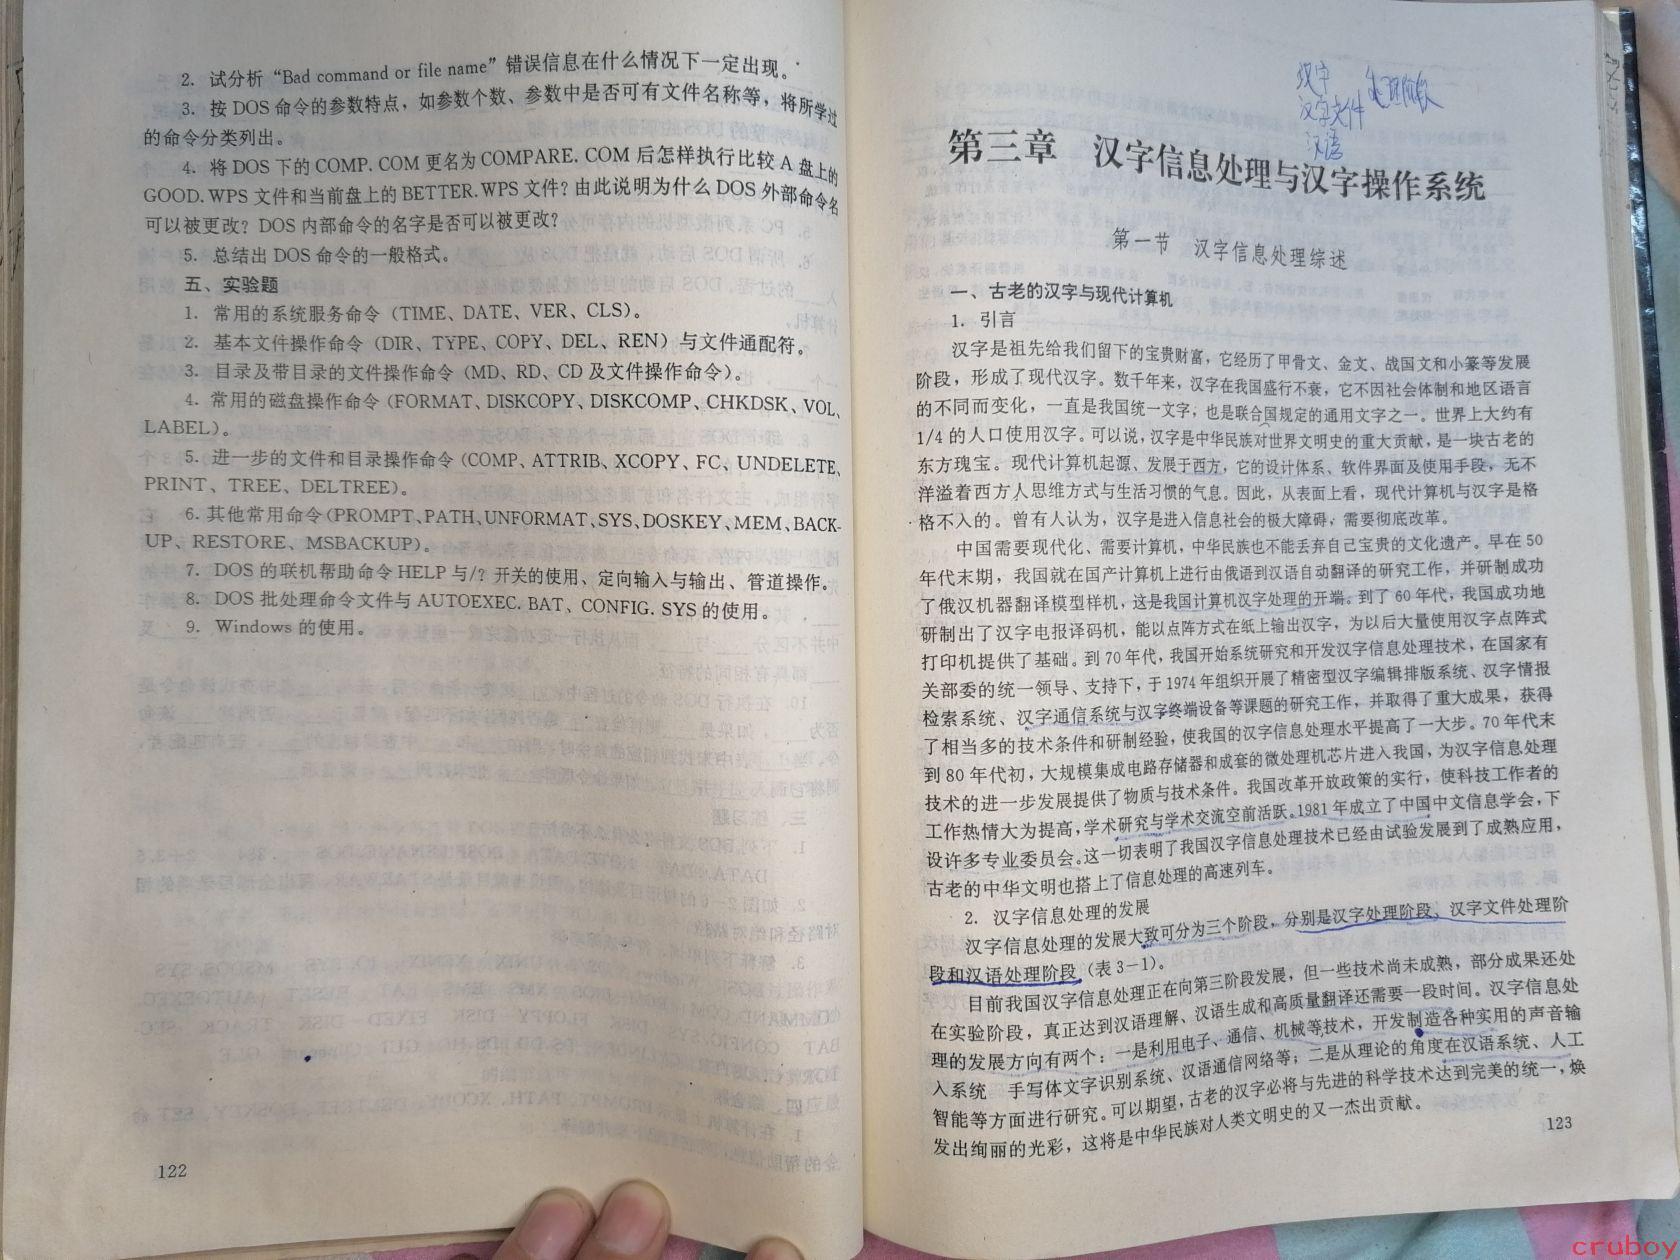 2. 试分析“Bad command or file name”错误信息在什么情况下一定出现。
3. 按 DOS 命令的参数特点，如参数个数、参数中是否可有文件名称等，将所学过
的命令分类列出。
4. 将 DOS 下的 COMP. COM 更名为 COMPARE. COM 后怎样执行比较 A 盘上的
GOOD. WPS 文件和当前盘上的 BETTER. WPS 文件？由此说明为什么 DOS 外部命令名
可以被更改？DOS 内部命令的名字是否可以被更改？
5. 总结出 DOS 命令的一般格式。
五、实验题
1. 常用的系统服务命令（TIME、DATE、VER、CLS）。
2. 基本文件操作命令（DIR、TYPE、COPY、DEL、REN）与文件通配符。
3. 目录及带目录的文件操作命令（MD、RD、CD 及文件操作命令）。
4. 常用的磁盘操作命令（FORMAT、DISKCOPY、DISKCOMP、CHKDSK、VOL、
LABEL）。
5. 进一步的文件和目录操作命令（COMP、ATTRIB、XCOPY、FC、UNDELETE、
PRINT、TREE、DELTREE）。
6. 其他常用命令（PROMPT、PATH、UNFORMAT、SYS、DOSKEY、MEM、BACK-
UP、RESTORE、MSBACKUP）。
7. DOS 的联机帮助命令 HELP 与/？开关的使用、定向输入与输出、管道操作。
8. DOS 批处理命令文件与 AUTOEXEC. BAT、CONFIG. SYS 的使用。
9. Windows 的使用。
122
汉字
汉字文件
汉语
处理阶段
第三章 汉字信息处理与汉字操作系统
第一节 汉字信息处理综述
一、古老的汉字与现代计算机
1. 引言
汉字是祖先给我们留下的宝贵财富，它经历了甲骨文、金文、战国文和小篆等发展
阶段，形成了现代汉字。数千年来，汉字在我国盛行不衰，它不因社会体制和地区语言
的不同而变化，一直是我国统一文字，也是联合国规定的通用文字之一。世界上大约有
1/4 的人口使用汉字。可以说，汉字是中华民族对世界文明史的重大贡献，是一块古老的
东方瑰宝。现代计算机起源、发展于西方，它的设计体系、软件界面及使用手段，无不
洋溢着西方人思维方式与生活习惯的气息。因此，从表面上看，现代计算机与汉字是格
格不入的。曾有人认为，汉字是进入信息社会的极大障碍，需要彻底改革。
中国需要现代化、需要计算机，中华民族也不能丢弃自己宝贵的文化遗产。早在 50
年代末期，我国就在国产计算机上进行由俄语到汉语自动翻译的研究工作，并研制成功
了俄汉机器翻译模型样机，这是我国计算机汉字处理的开端。到了 60 年代，我国成功地
研制出了汉字电报译码机，能以点阵方式在纸上输出汉字，为以后大量使用汉字点阵式
打印机提供了基础。到 70 年代，我国开始系统研究和开发汉字信息处理技术，在国家有
关部委的统一领导、支持下，于 1974 年组织开展了精密型汉字编辑排版系统、汉字情报
检索系统、汉字通信系统与汉字终端设备等课题的研究工作，并取得了重大成果，获得
了相当多的技术条件和研制经验，使我国的汉字信息处理水平提高了一大步。70 年代末
到 80 年代初，大规模集成电路存储器和成套的微处理机芯片进入我国，为汉字信息处理
技术的进一步发展提供了物质与技术条件。我国改革开放政策的实行，使科技工作者的
工作热情大为提高，学术研究与学术交流空前活跃。1981 年成立了中国中文信息学会，下
设许多专业委员会。这一切表明了我国汉字信息处理技术已经由试验发展到了成熟应用，
古老的中华文明也搭上了信息处理的高速列车。
2. 汉字信息处理的发展
汉字信息处理的发展大致可分为三个阶段，分别是汉字处理阶段、汉字文件处理阶
段和汉语处理阶段（表 3-1）。
目前我国汉字信息处理正在向第三阶段发展，但一些技术尚未成熟，部分成果还处
在实验阶段，真正达到汉语理解、汉语生成和高质量翻译还需要一段时间。汉字信息处
理的发展方向有两个：一是利用电子、通信、机械等技术，开发制造各种实用的声音输
入系统 手写体文字识别系统、汉语通信网络等；二是从理论的角度在汉语系统、人工
智能等方面进行研究。可以期望，古老的汉字必将与先进的科学技术达到完美的统一，焕
发出绚丽的光彩，这将是中华民族对人类文明史的又一杰出贡献。
123
cruboy